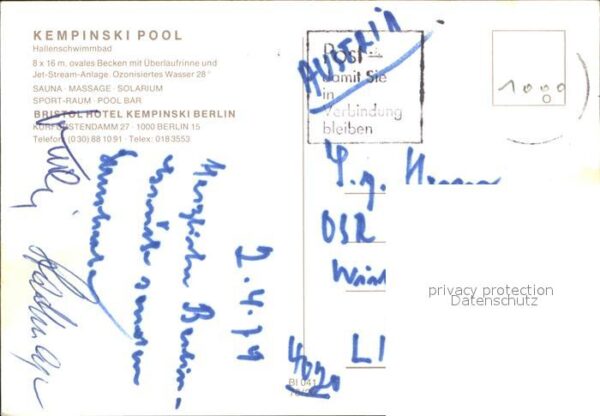 KEMPINSKI POOL
Hallenschwimmbad
8 x 16 m, ovales Becken mit Überlaufrinne und
Jet-Stream-Anlage. Ozonisiertes Wasser 28°
SAUNA · MASSAGE · SOLARIUM
SPORT-RAUM · POOL BAR
BRISTOL HOTEL KEMPINSKI BERLIN
KURFÜRSTENDAMM 27 · 1000 BERLIN 15
Telefon (030) 88 10 91 · Telex: 018 3553
2.4.79
Herzliche Berlin-
Grüße senden
AUSTRIA
Post -
damit Sie
in
Verbindung
bleiben
1000
S. g. Herrn
OSR
4020
LI
BI 041
privacy protection
Datenschutz